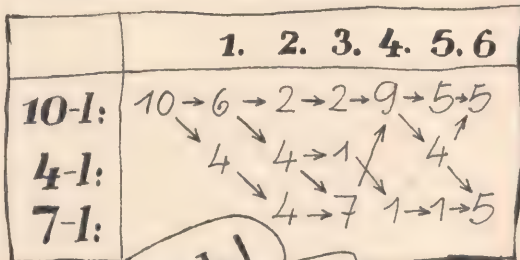 1. 2. 3. 4. 5. 6
10-l: 10 → 6 → 2 → 2 → 9 → 5 → 5
4-l: 4 4 → 1 4
7-l: 4 → 7 1 → 1 → 5